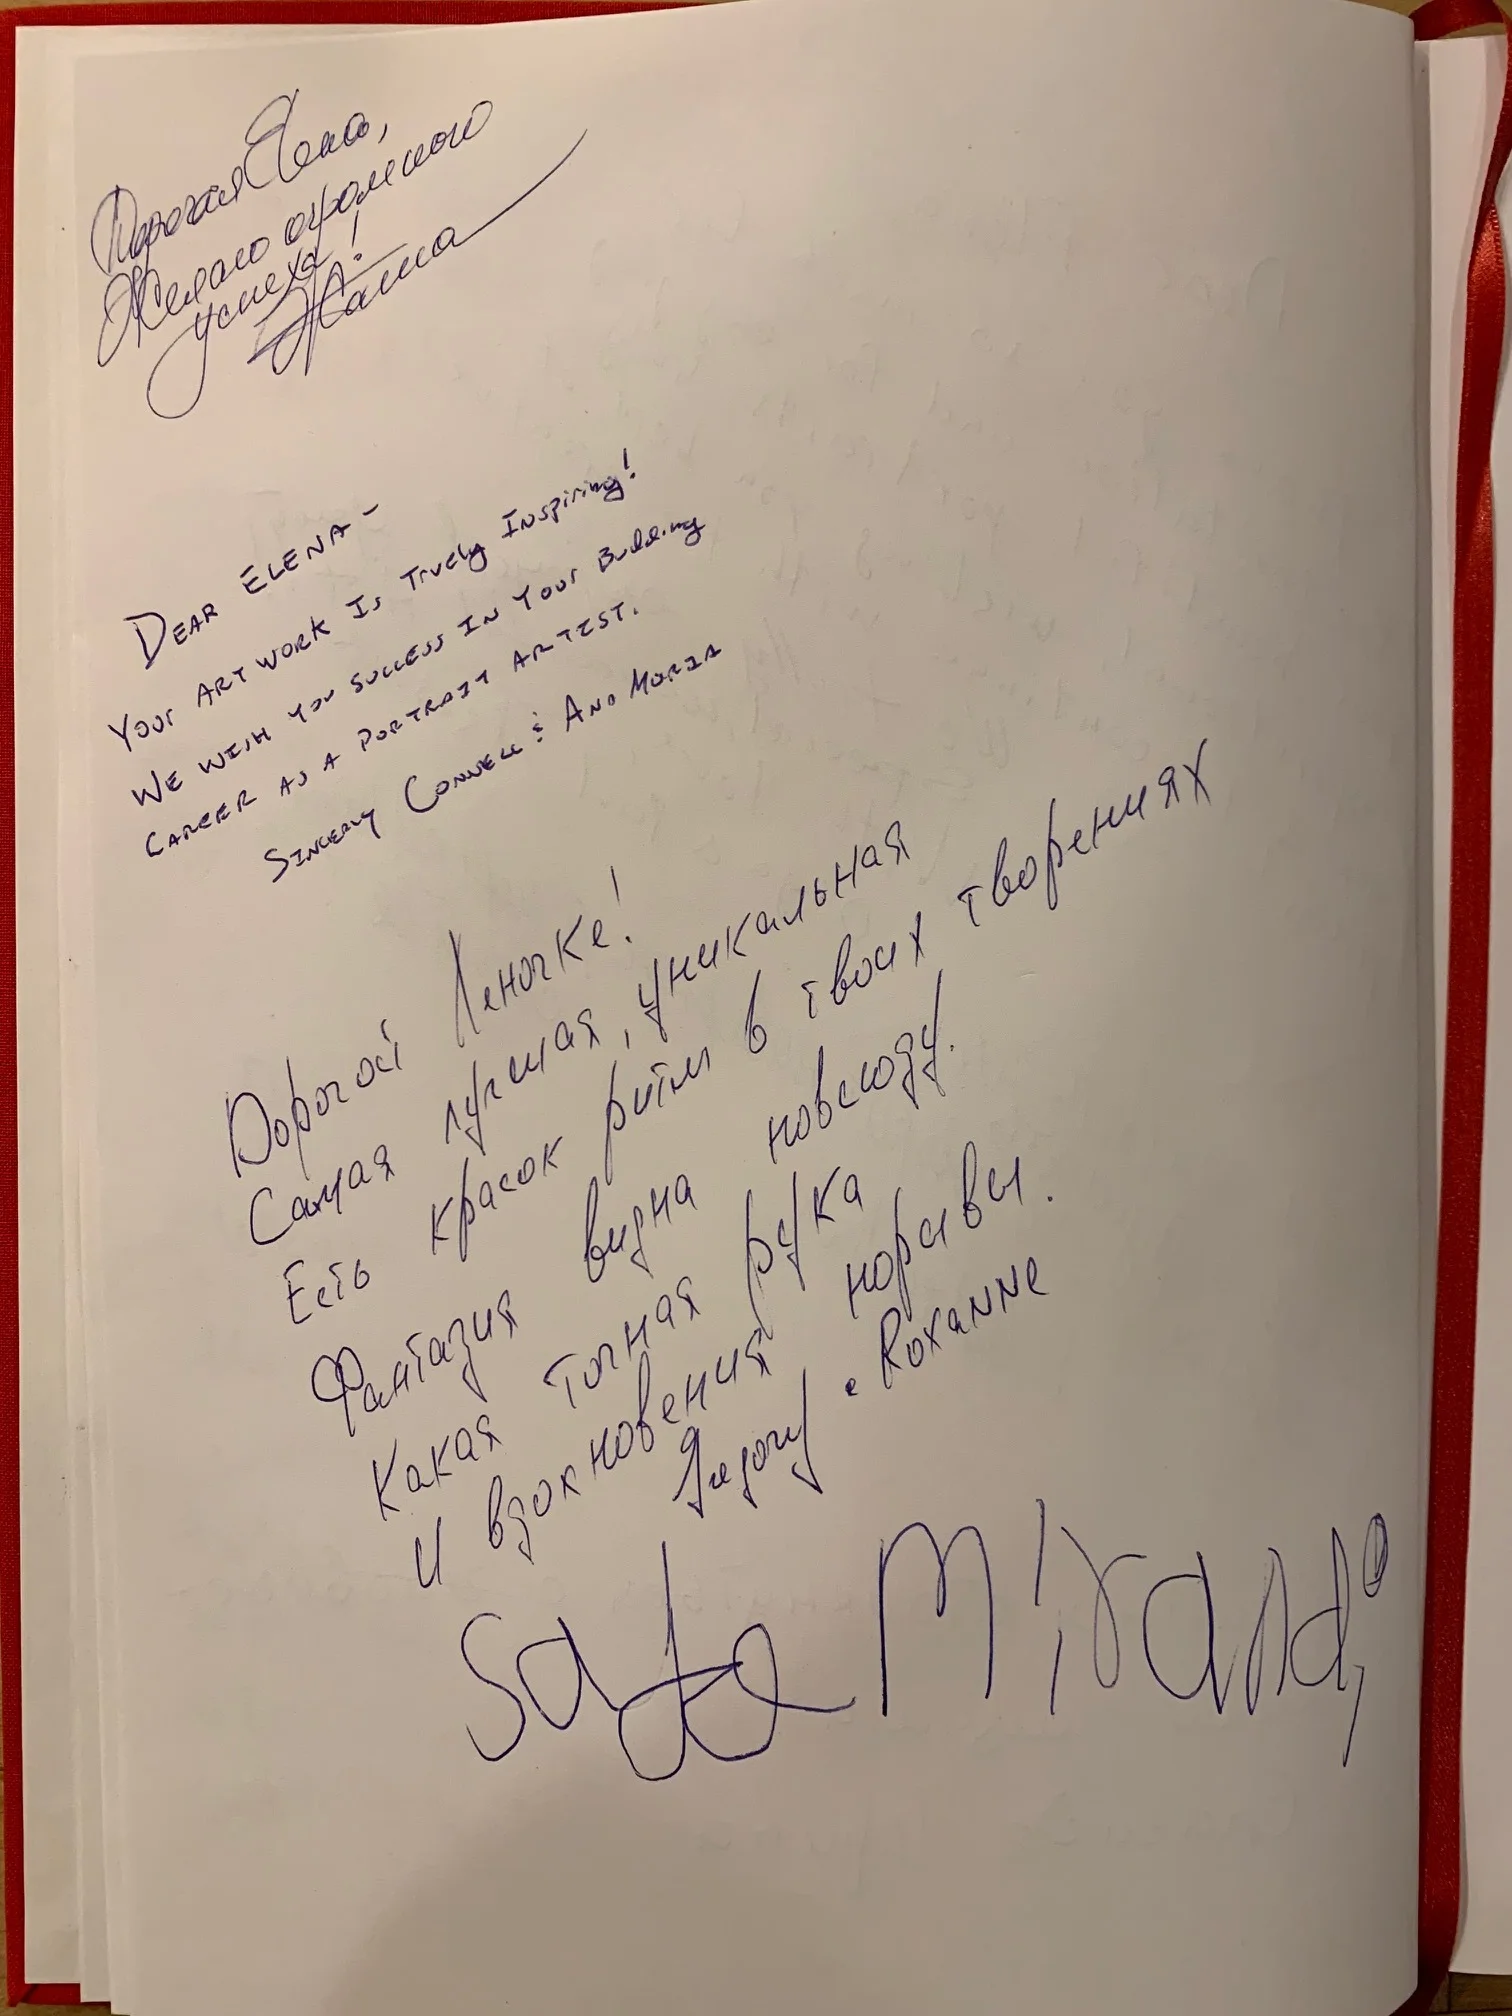 Дорогая Лена,
Желаю огромного
успеха!
Наташа
DEAR ELENA -
YOUR ARTWORK IS TRUELY INSPIRING!
WE WISH YOU SUCCESS IN YOUR BUDDING
CAREER AS A PORTRAIT ARTIST.
SINCERLY CONNELL & ANA MARIA
Дорогой Леночке!
Самая лучшая, уникальная
Есть красок ритм в твоих творениях
Фантазия видна повсюду.
Какая точная рука
И вдохновения порывы.
Gregory & Roxanne
Mirand